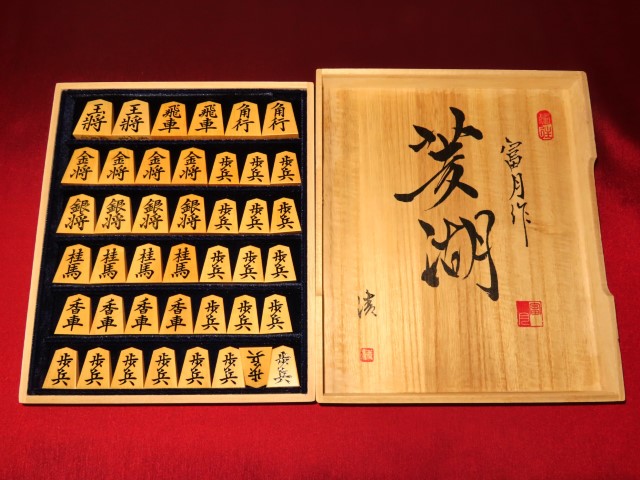 玉将 王将 飛車 飛車 角行 角行
金将 金将 金将 金将 歩兵 歩兵 歩兵
銀将 銀将 銀将 銀将 歩兵 歩兵 歩兵
桂馬 桂馬 桂馬 桂馬 歩兵 歩兵 歩兵
香車 香車 香車 香車 歩兵 歩兵 歩兵
歩兵 歩兵 歩兵 歩兵 歩兵 歩兵 歩兵 歩兵
富月作
菱湖